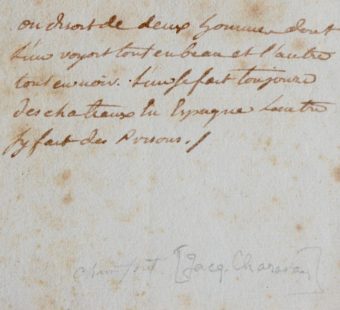 on disoit de deux hommes dont
l'un voyoit tout en beau et l'autre
tout en noir. l'un se fait toujours
des chateaux En Espagne L'autre
s'y fait des Prisons. /
Chamfort [Jacq. Charavay]